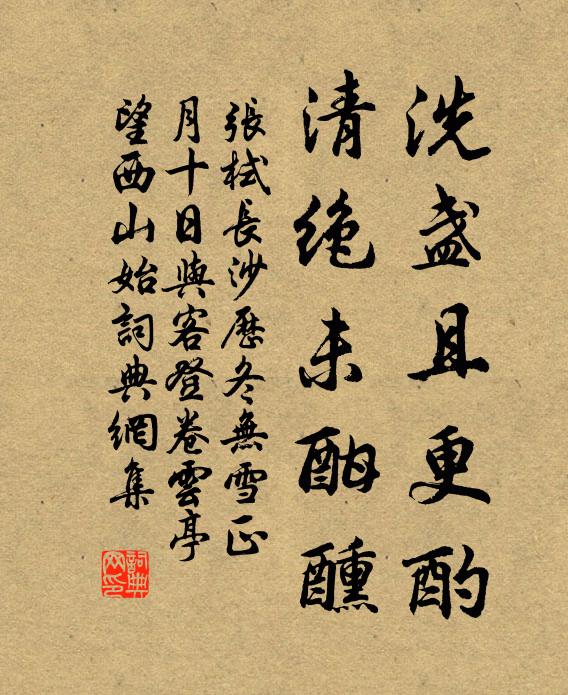 洗盞且更酌
清絶未酣醺
張栻長沙歷冬無雪正
月十日與客登卷雲亭
望西山始詞典網集
詞典
網印